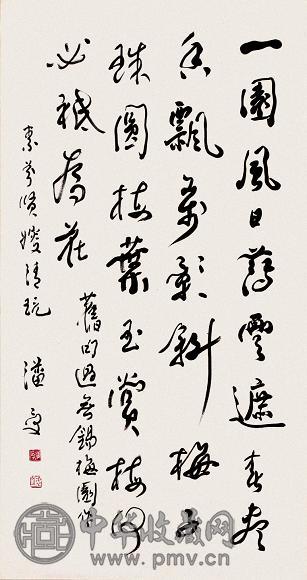 一園風日薄雲遮春
香飄萬影斜梅子
珠圓枝葉玉賞梅何
必祇為花
舊句過無錫梅園作
素芬賢嫂清玩
潘受
中华收藏网
www.pmv.cn